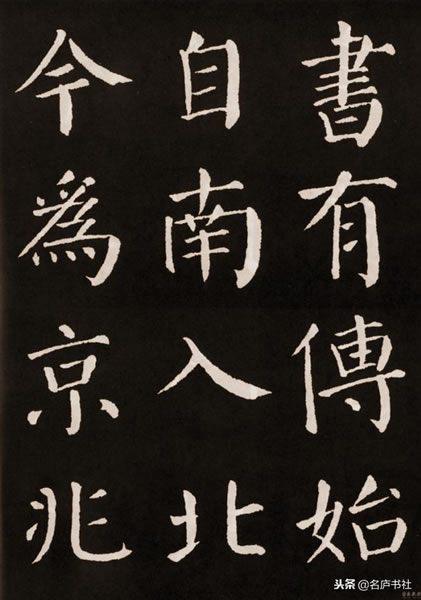 書有傳始
自南入北
今為京兆
头条@名庐书社